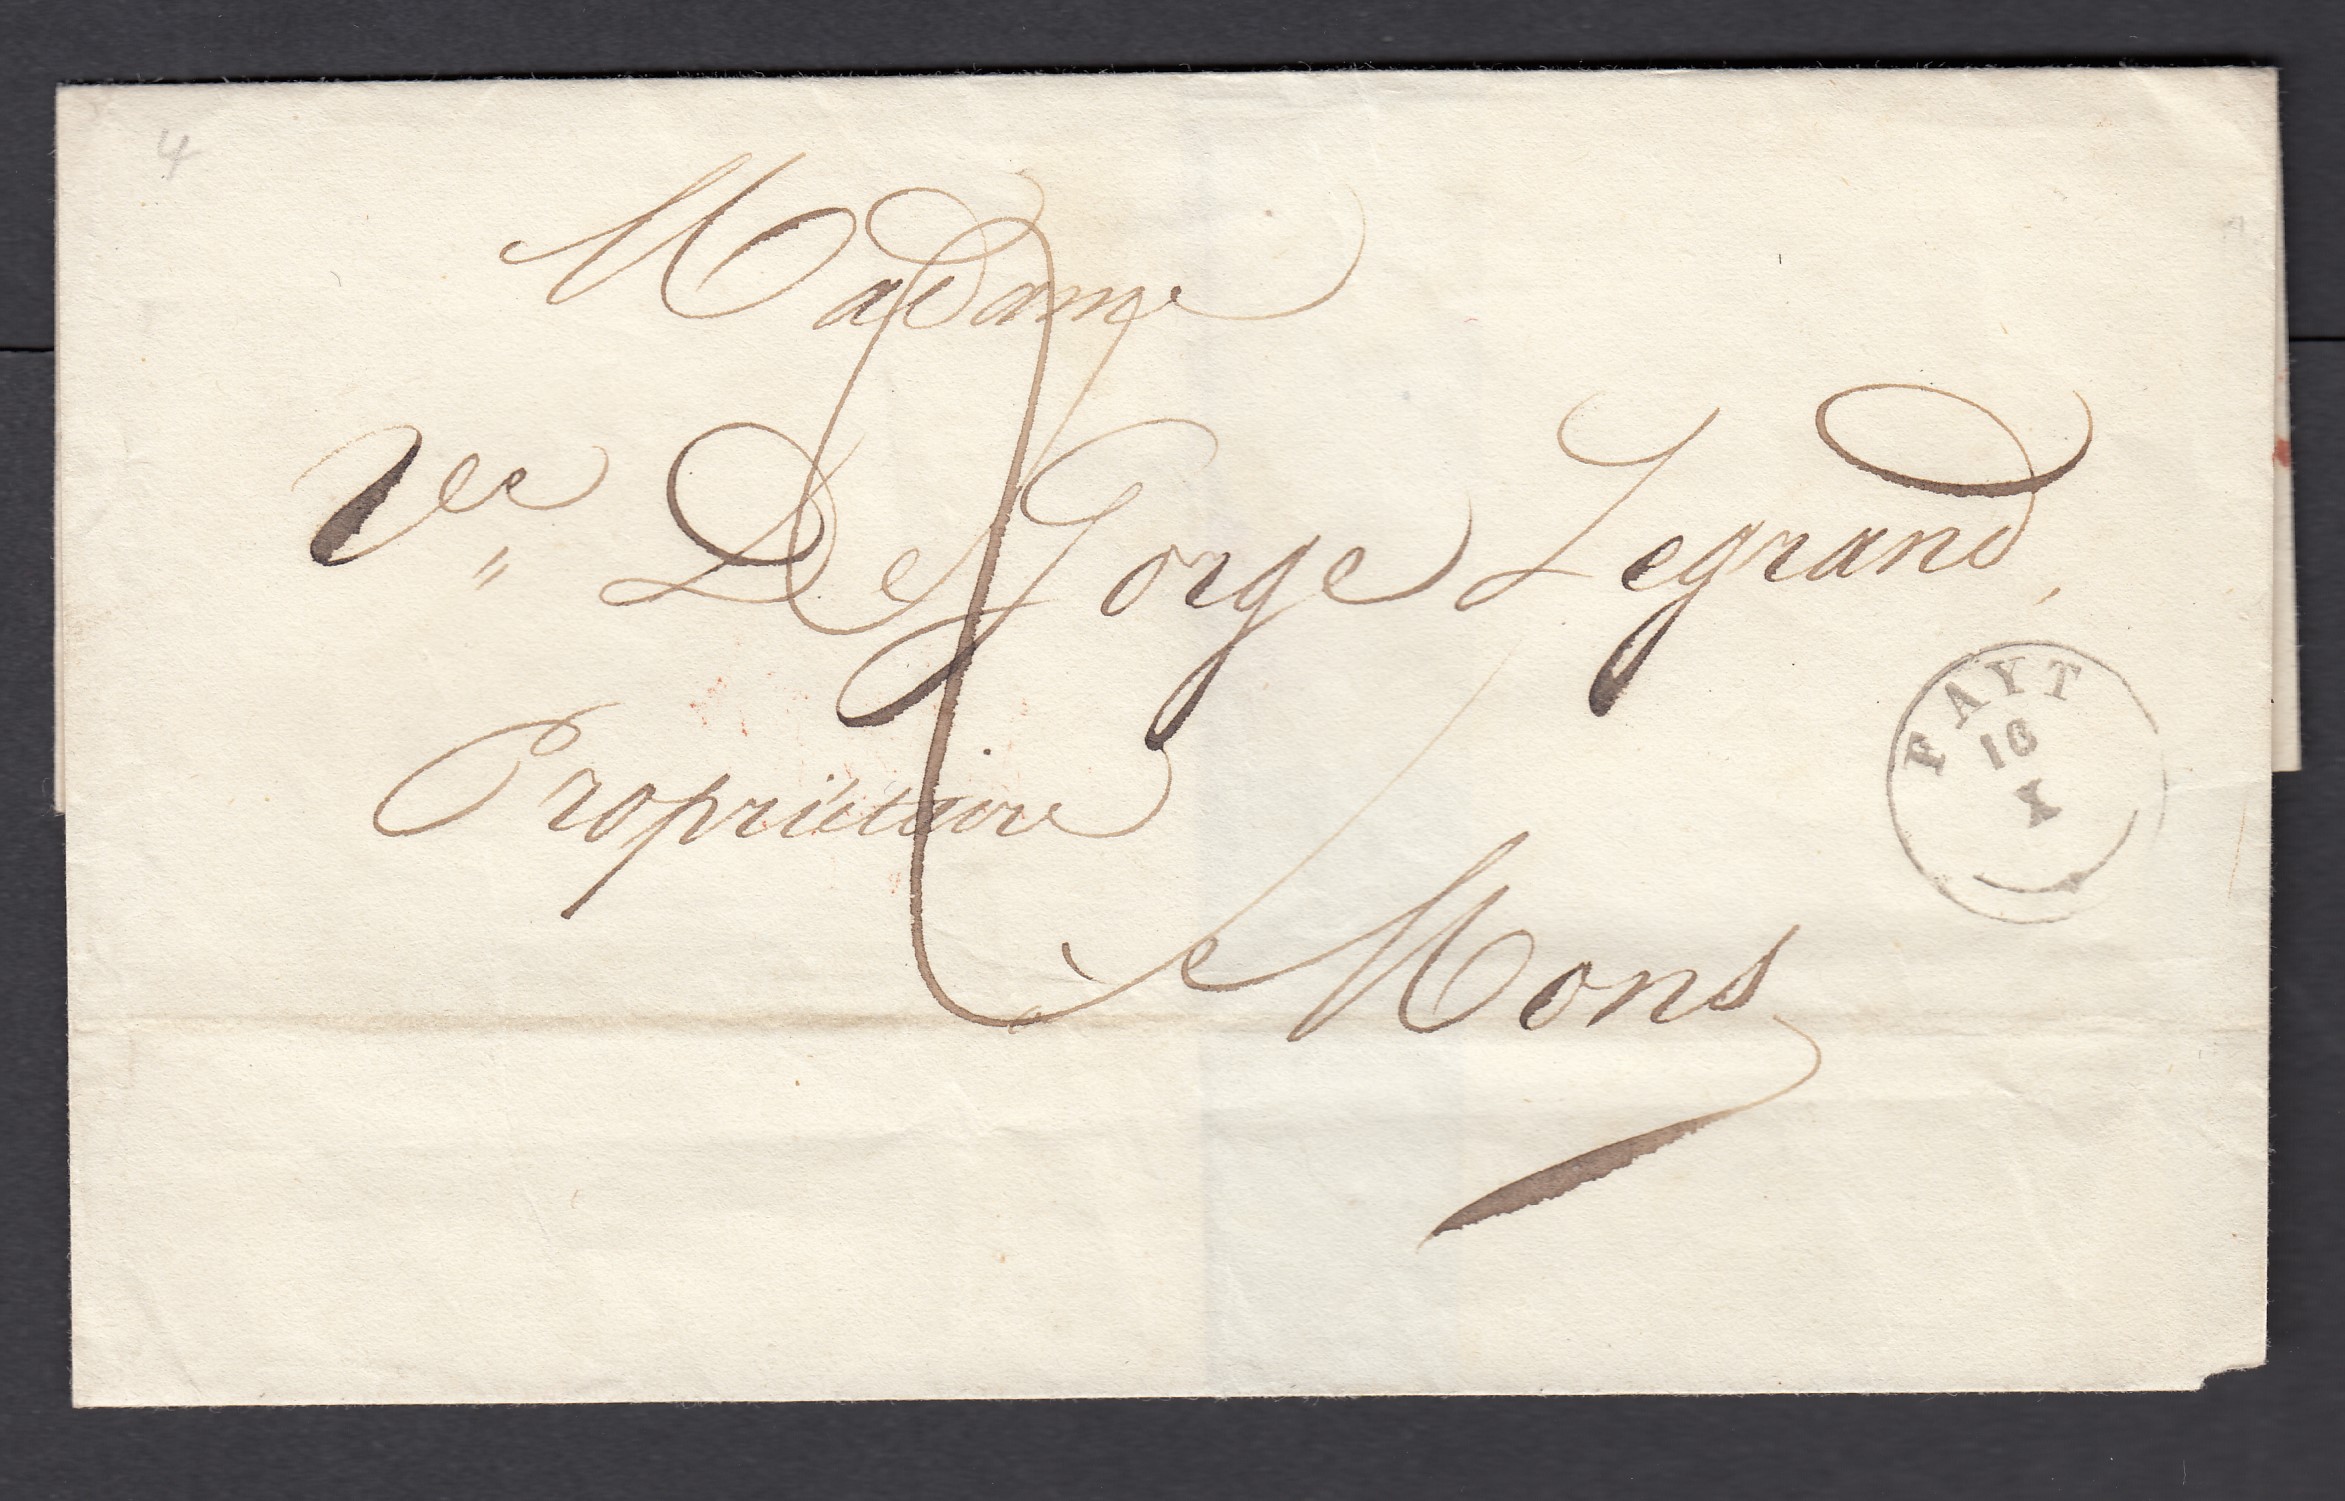 4
Madame
Vee De Gorge Legrand,
Propriétaire
à Mons
FAYT
16
X